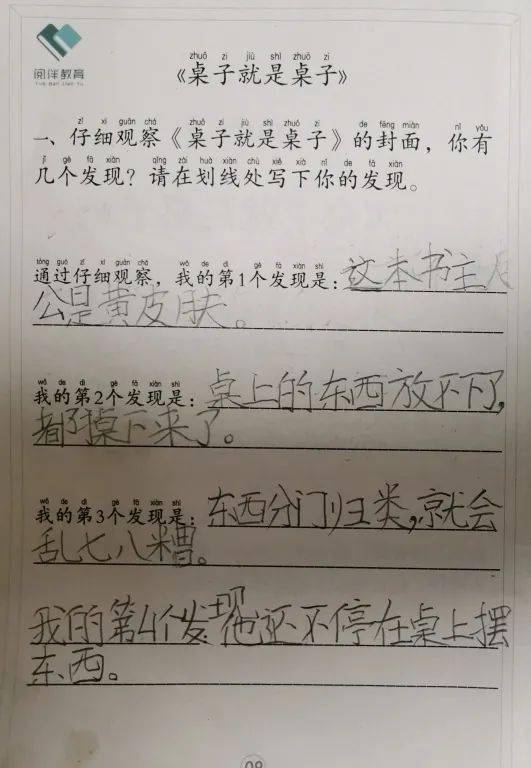 阅洋教育
YUE YANG JIAO YU
zhuō zi jiù shì zhuō zi
《桌子就是桌子》
zǐ xì guān chá zhuō zi jiù shì zhuō zi de fēng miàn nǐ yǒu
一、仔细观察《桌子就是桌子》的封面，你有
jǐ gè fā xiàn qǐng zài huà xiàn chù xiě xià nǐ de fā xiàn
几个发现？请在划线处写下你的发现。
tōng guò zǐ xì guān chá wǒ de dì gè fā xiàn shì
通过仔细观察，我的第1个发现是：这本书主人
公是黄皮肤。
wǒ de dì gè fā xiàn shì
我的第2个发现是：桌上的东西放不下了，
都掉下来了。
wǒ de dì gè fā xiàn shì
我的第3个发现是：东西分门归类，就会
乱七八糟。
我的第4个发现他还不停在桌上摆
东西。
09